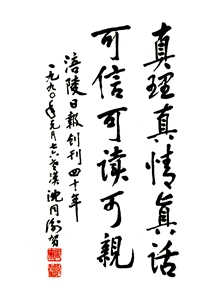 真理真情真话
可信可读可亲
涪陵日报创刊四十年
一九九〇年元月
沈同衡贺